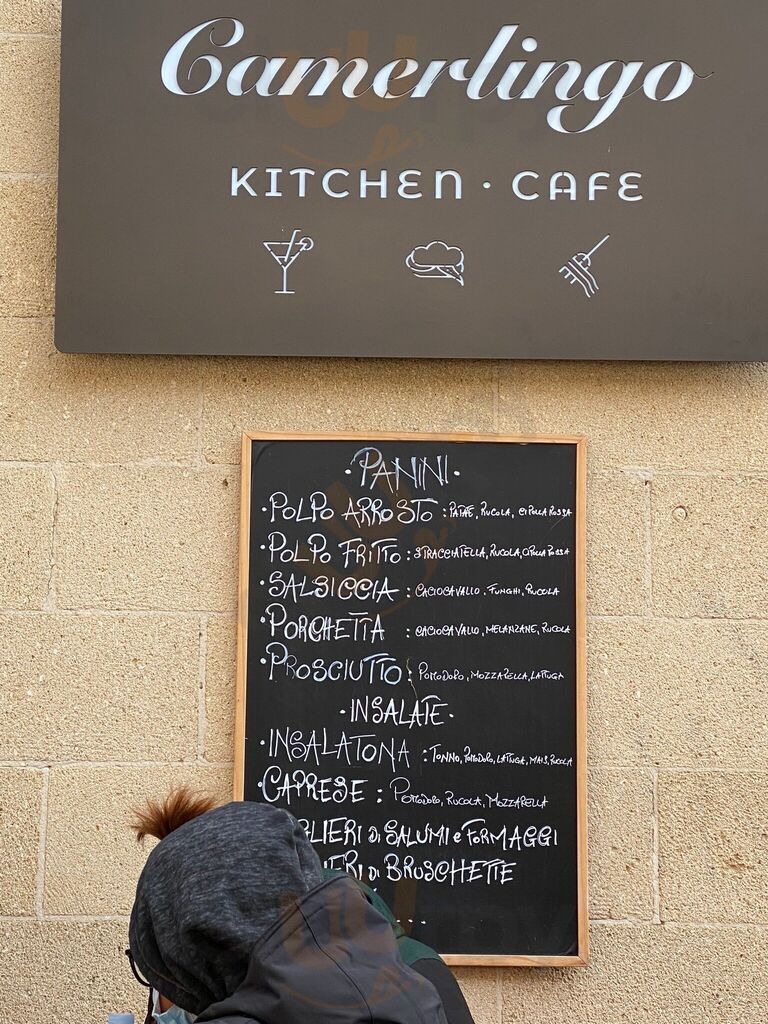 Camerlingo
KITCHEN · CAFE
· PANINI ·
· POLPO ARROSTO : PATATE, RUCOLA, CIPOLLA ROSSA
· POLPO FRITTO : STRACCIATELLA, RUCOLA, CIPOLLA ROSSA
· SALSICCIA : CACIOCAVALLO, FUNGHI, RUCOLA
· PORCHETTA : CACIOCAVALLO, MELANZANE, RUCOLA
· PROSCIUTTO : POMODORO, MOZZARELLA, LATTUGA
· INSALATE ·
· INSALATONA : TONNO, POMODORO, LATTUGA, MAIS, RUCOLA
· CAPRESE : POMODORO, RUCOLA, MOZZARELLA
GLIERI DI SALUMI e FORMAGGI
IERI DI BRUSCHETTE